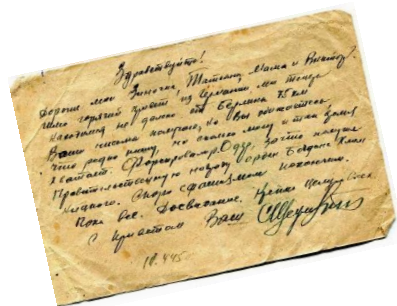 Здравствуйте!
Дорогие мои Зиночка, Татьяна, Мама и Виктор!
Шлю горячий привет из Германии. Мы теперь
находимся не далеко от Берлина 75 км
Ваши письма получаю, но вы обижаетесь,
что редко пишу, но сколько могу и так время
хватает. Форсировали р. Одру, за что получил
Правительственную награду Орден Богдана Хмель
ницкого. Скоро с фашизмом покончим.
Пока все. Досвидание. Крепко целую всех
С приветом Ваш